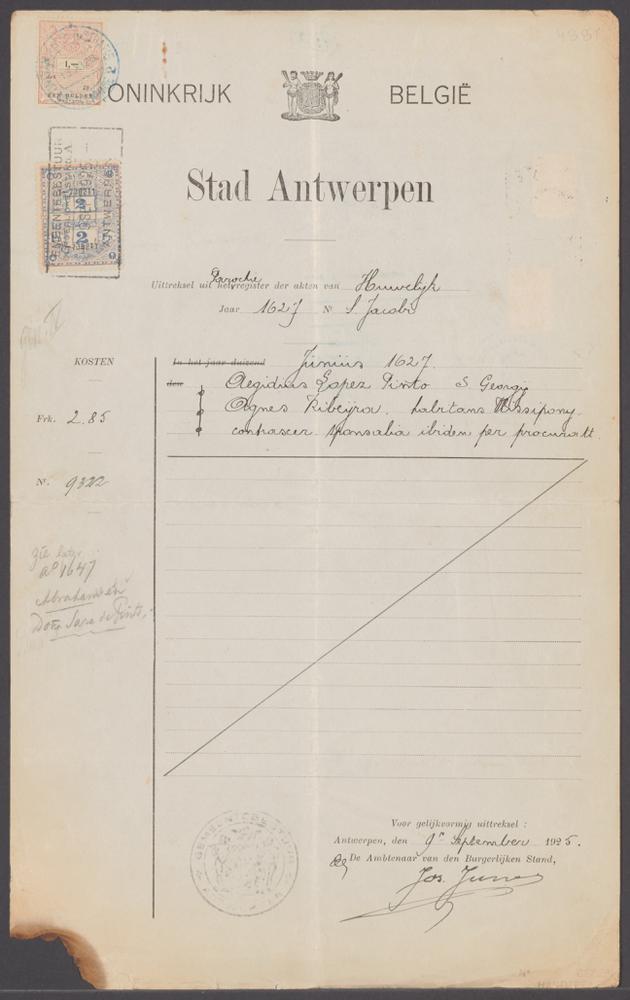 ONINKRIJK BELGIË
Stad Antwerpen
Parochie
Uittreksel uit het register der akten van Huwelijk
Jaar 1627 Nr S. Jacobi
KOSTEN
Frk. 2.85
Nr. 9322
In het jaar duizend Junius 1627.
den Aegidius Lopez Pinto S Georgy
Agnes Ribeijra. habitans Ulissipony.
contraxer. sponsalia ibidem per procuratt.
zie latr.
aº 1647
Abraham en
Doña Sara de Pinto,
Voor gelijkvormig uittreksel :
Antwerpen, den 9r September 1925.
De Ambtenaar van den Burgerlijken Stand,
GEMEENTEBESTUUR
ANTWERPEN
1,—
2 2